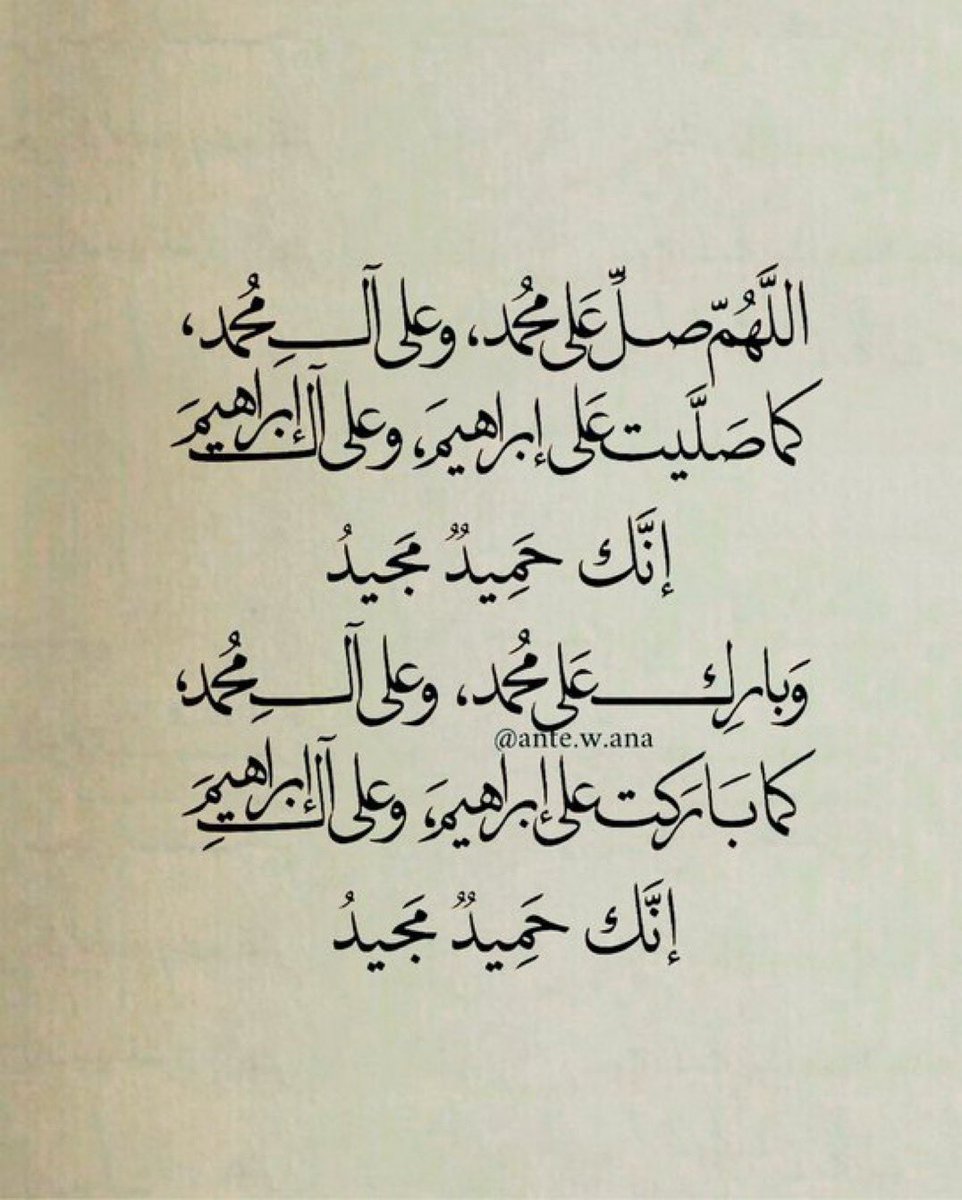 اللَّهُمّ صلِّ عَلى مُحمد، وعلى آلِ مُحمد،
كما صَلَّيت عَلى إبراهيمَ، وعلى آل إبراهيمَ
إنَّك حَمِيدٌ مَجيدُ
وَبارِك عَلى مُحمد، وعلى آلِ مُحمد،
@ante.w.ana
كما بَارَكت على إبراهيمَ، وعلى آلِ إبراهيمَ
إنَّك حَمِيدٌ مَجيدُ